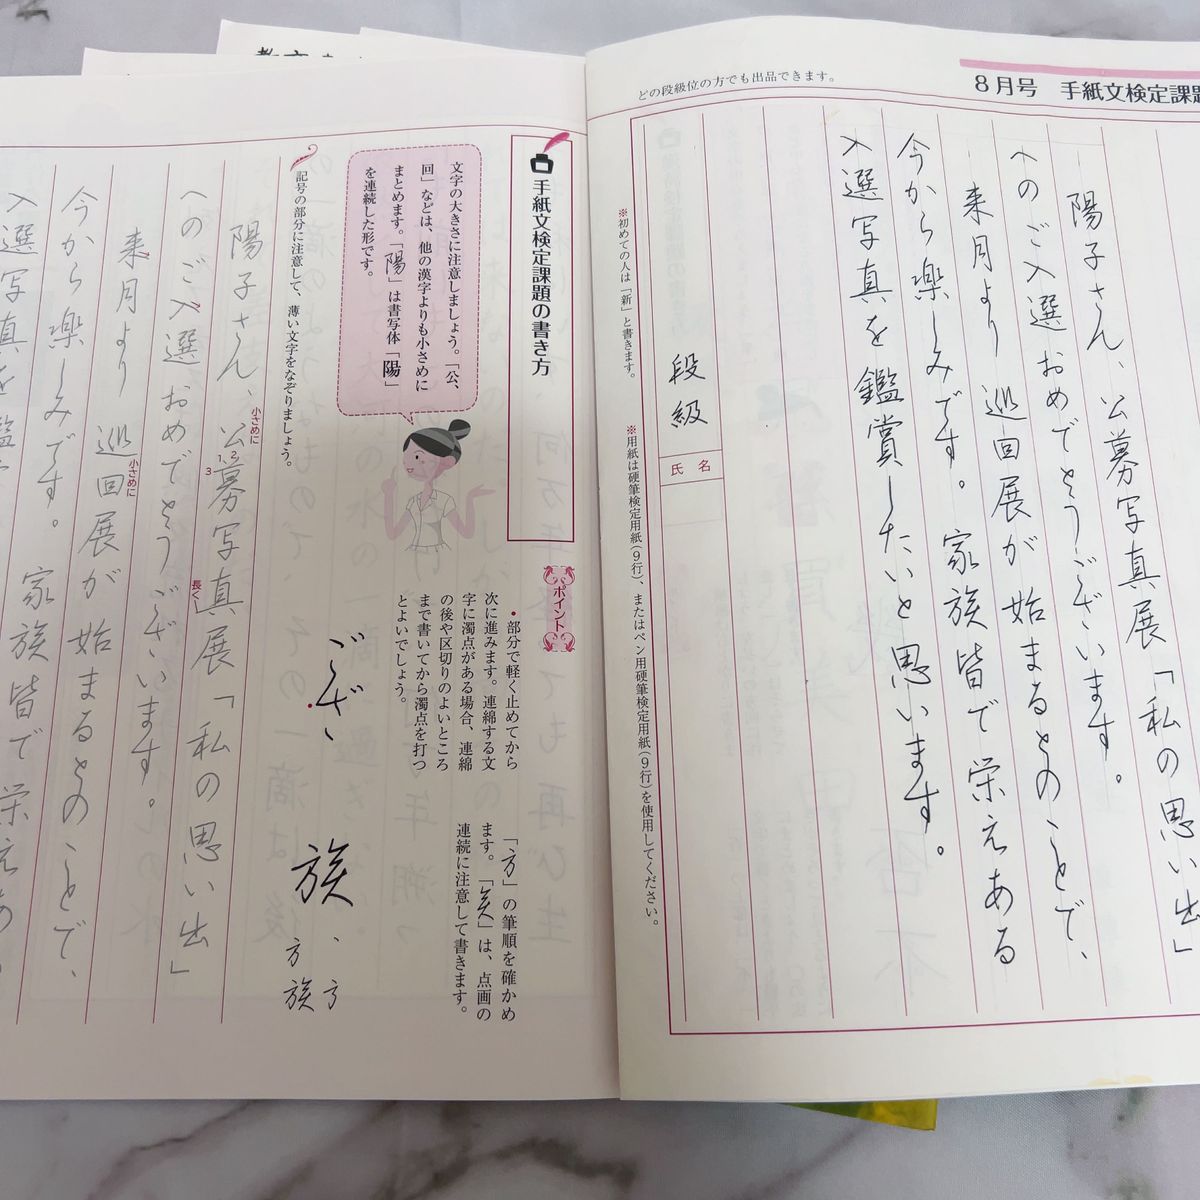 どの段級位の方でも出品できます。
8月号 手紙文検定課題
陽子さん、公募写真展「私の思い出」
へのご入選おめでとうございます。
来月より巡回展が始まるとのことで、
今から楽しみです。家族皆で栄えある
入選写真を鑑賞したいと思います。
段級
氏名
※初めての人は「新」と書きます。
※用紙は硬筆検定用紙(9行)、またはペン用硬筆検定用紙(9行)を使用してください。
手紙文検定課題の書き方
文字の大きさに注意しましょう。「公、
回」などは、他の漢字よりも小さめに
まとめます。「陽」は書写体「陽」
を連続した形です。
記号の部分に注意して、薄い文字をなぞりましょう。
ポイント
・部分で軽く止めてから
次に進みます。連綿する文
字に濁点がある場合、連綿
の後や区切りのよいところ
まで書いてから濁点を打つ
とよいでしょう。
ござい
「方」の筆順を確かめ
ます。「矢」は、点画の
連続に注意して書きます。
族
、方
方族
陽子さん、公募写真展「私の思い出」
小さめに
1 2
3
長く
へのご入選おめでとうございます。
来月より巡回展が始まるとのことで、
小さめに
今から楽しみです。家族皆で栄えあ
入選写真を鑑